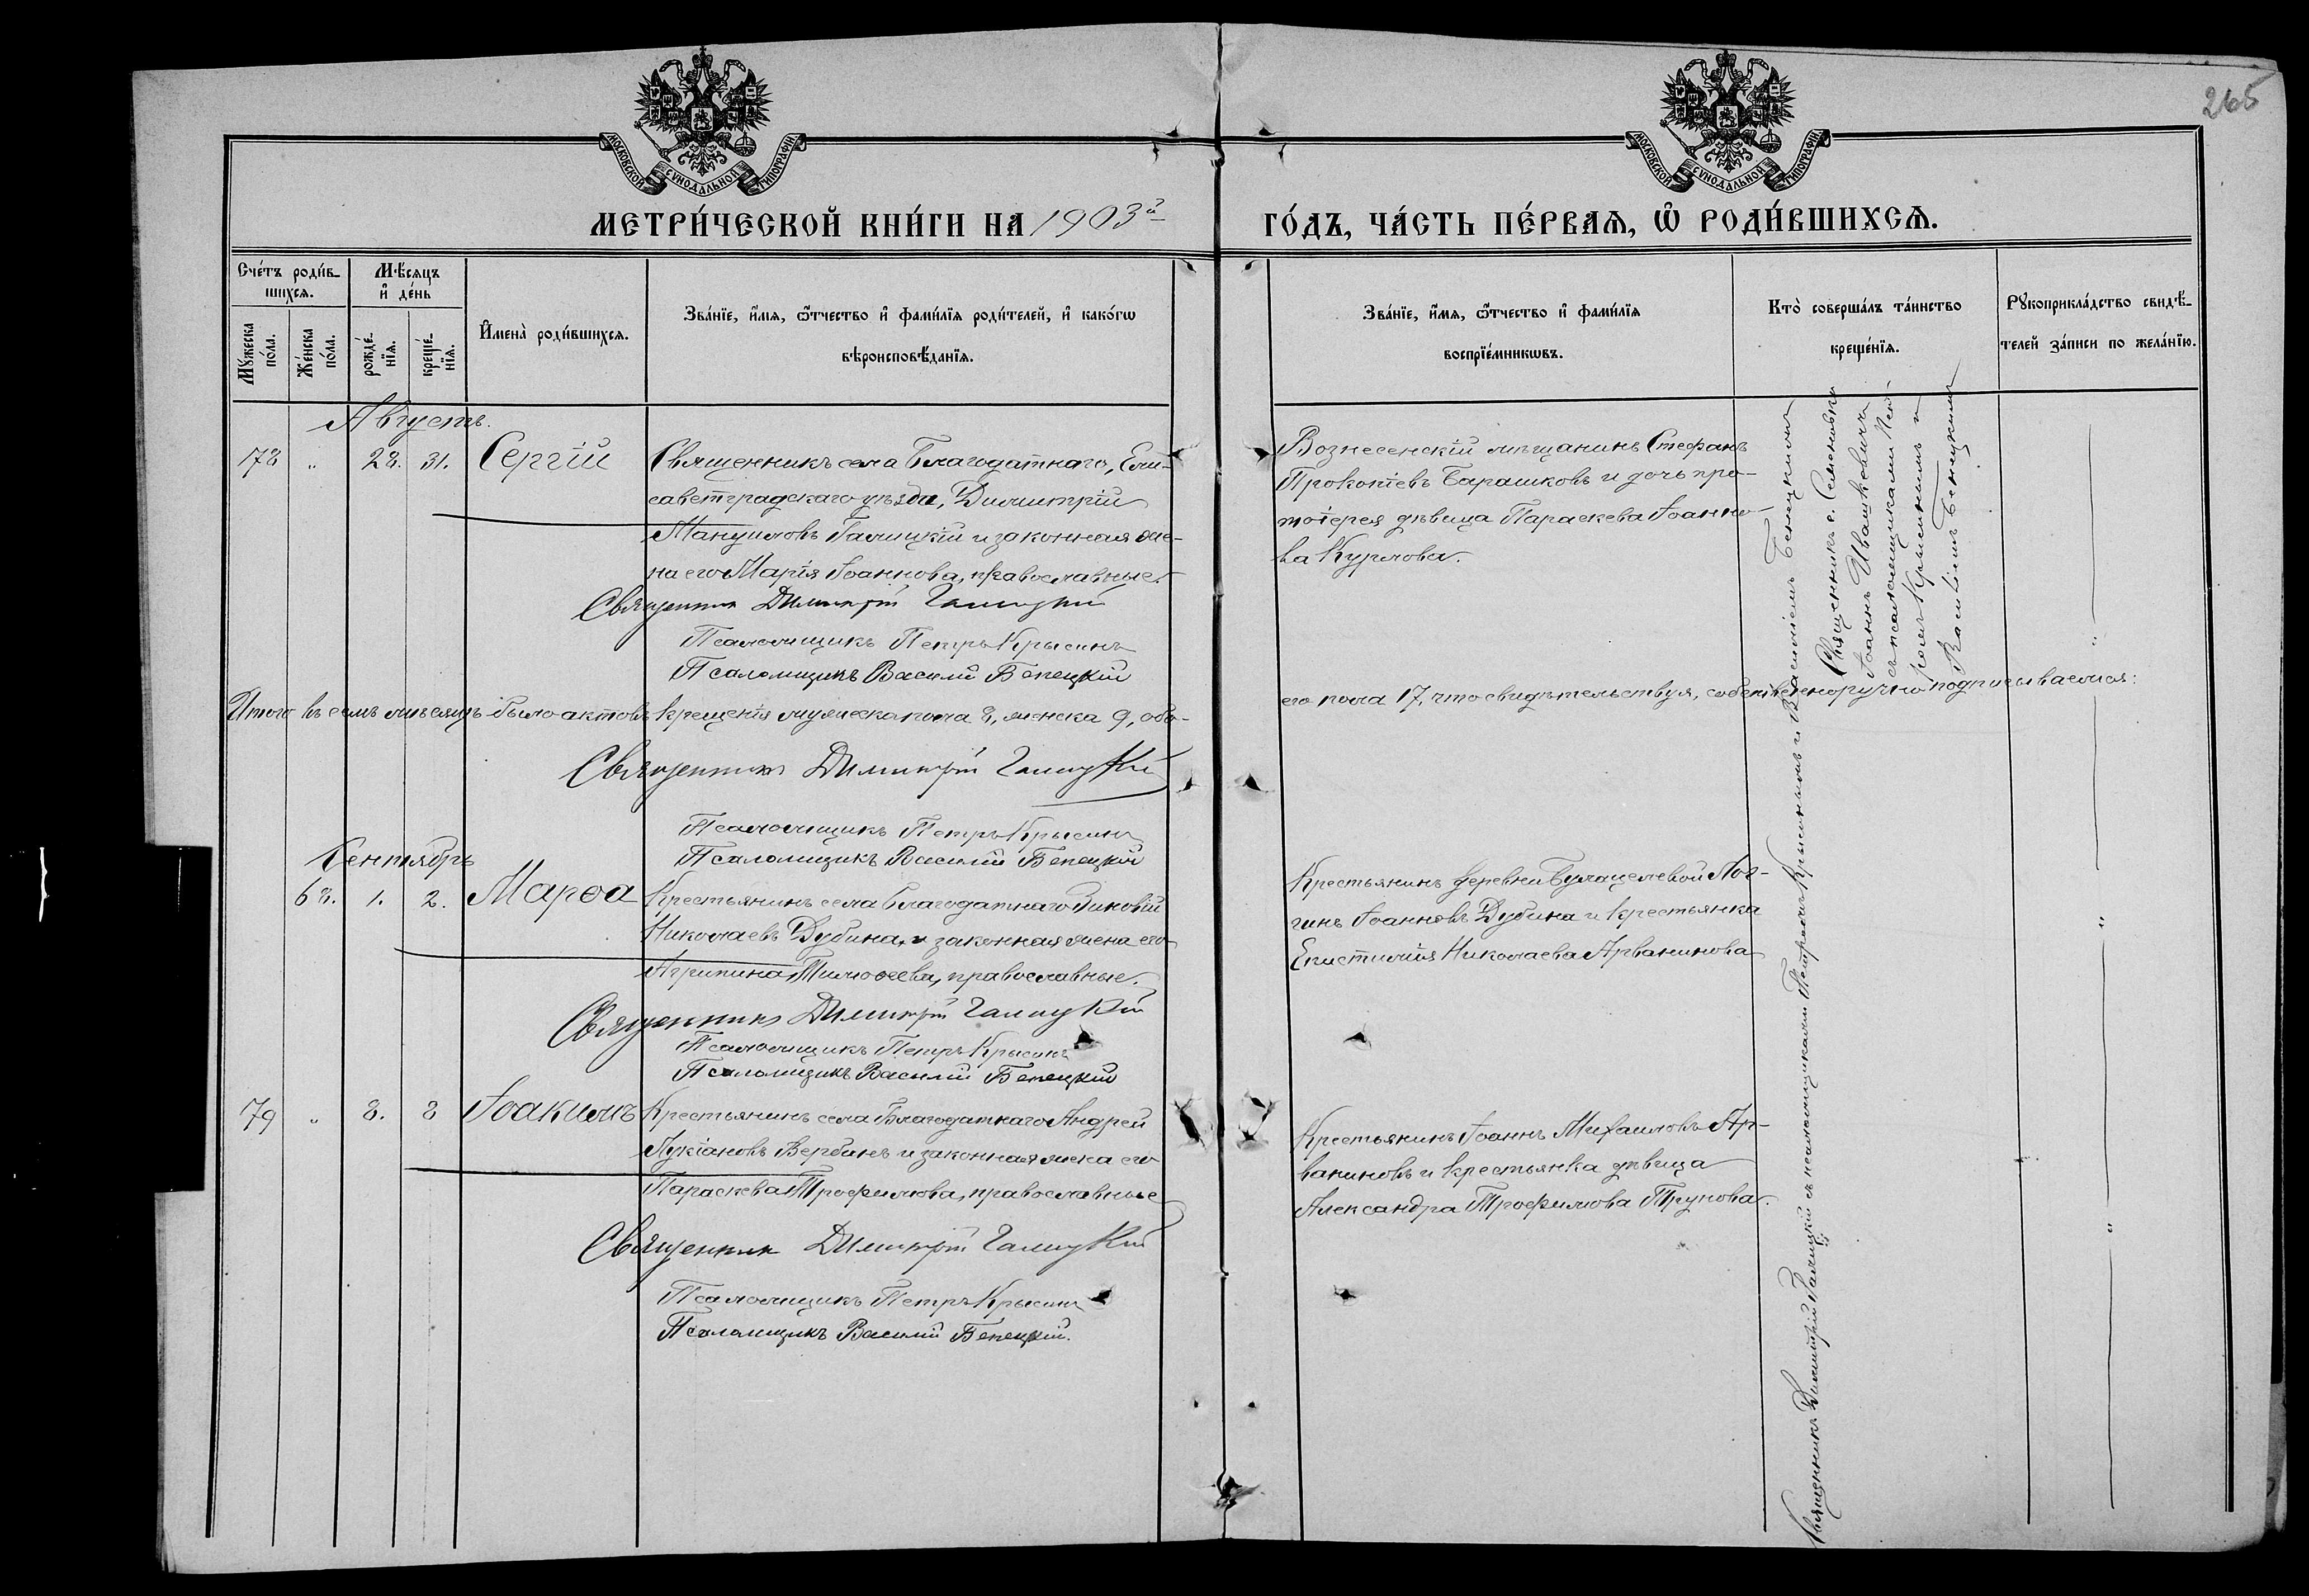 265
МОСКОВСКОЙ СѴНОДАЛЬНОЙ ТИПОГРАФІИ
МОСКОВСКОЙ СѴНОДАЛЬНОЙ ТИПОГРАФІИ
МЕТРИ́ЧЕСКОЙ КНИ́ГИ НА 1903й
ГО́ДЪ, ЧА́СТЬ ПЕ́РВАѦ, Ѡ҆ РОДИ́ВШИХСѦ.
Сче́тъ роди́в-
шихсѧ.
Мꙋ́жеска
по́ла.
Же́нска
по́ла.
Мѣ́сѧцъ
и҆ де́нь
рожде́-
нїѧ.
креще́-
нїѧ.
И҆мена̀ роди́вшихсѧ.
Зва́нїе, и҆́мѧ, ѻ҆́тчество и҆ фами́лїѧ роди́телей, и҆ како́гѡ
вѣроисповѣ́данїѧ.
Зва́нїе, и҆́мѧ, ѻ҆́тчество и҆ фами́лїѧ
воспрїе́мникѡвъ.
Кто̀ соверша́лъ та́инство
креще́нїѧ.
Рꙋкоприкла́дство свидѣ́-
телей за́писи по жела́нїю.
Августъ.
178 " 28. 31. Сергій
Священникъ села Благодатнаго, Ели-
саветградскаго уѣзда, Димитрій
Мануиловъ Галицкій и законная же-
на его Марія Іоаннова, православные.
Священник Димитрій Галицкій
Псаломщикъ Петръ Крысинъ
Псаломщикъ Василій Бенецкій
Вознесенскій мѣщанинъ Стефанъ
Прокопіевъ Барашковъ и дочь про-
тоіерея дѣвица Параскева Іоанно-
ва Курлова.
Священникъ с. Семеновки
Іоаннъ Ивашкевичъ
съ псаломщиками Пет-
ромъ Крысинымъ и
Василіемъ Бенецкимъ
Итого въ семъ мѣсяцѣ было актовъ крещенія мужеска пола 8, женска 9, обо-
его пола 17, что свидѣтельствуя, собственноручно подписываемся:
Священникъ Димитрій Галицкій
Псаломщикъ Петръ Крысинъ
Псаломщикъ Василій Бенецкій
Сентябрь
68. 1. 2. Марѳа
Крестьянинъ села Благодатнаго Зиновій
Николаевъ Дубина, и законная жена его
Агрипина Тимоѳеева, православные.
Священникъ Димитрій Галицкій
Псаломщикъ Петръ Крысинъ
Псаломщикъ Василій Бенецкій
Крестьянинъ деревни Булацелевой Лог-
гинъ Іоанновъ Дубина и крестьянка
Епистимія Николаева Арванинова
79 " 8. 8 Іоакимъ
Крестьянинъ села Благодатнаго Андрей
Лукіановъ Вербинъ и законная жена его
Параскева Трофимова, православные
Священник Димитрій Галицкій
Псаломщикъ Петръ Крысинъ
Псаломщикъ Василій Бенецкій.
Крестьянинъ Іоаннъ Михаиловъ Ар-
ваниновъ и крестьянка дѣвица
Александра Трофимова Трунова.
Священникъ Димитрій Галицкій съ псаломщиками Петромъ Крысинымъ и Василіемъ Бенецкимъ